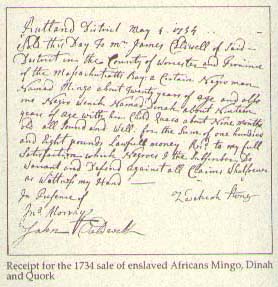 Rutland District May 4 1754
Sold this Day To Mr James Caldwell of Said
District in the County of Worcester and Province
of the Massachusetts Bay a Certain Negro man
Named Mingo about twenty years of age and also
one Negro wench Named Dinah about Ninteen
years of age with her Child Quaco about Nine months
old all Sound and well for the Sum of one hundred
and Eight pounds Lawfull money Recd to my full
Satisfaction which Negros I the Subscriber Do
warrant and Defend against all Claims Whatsoever
as Witness my Hand
In Presence of Zedekiah Stone
Jno Murray
John Caldwell
Receipt for the 1734 sale of enslaved Africans Mingo, Dinah
and Quork